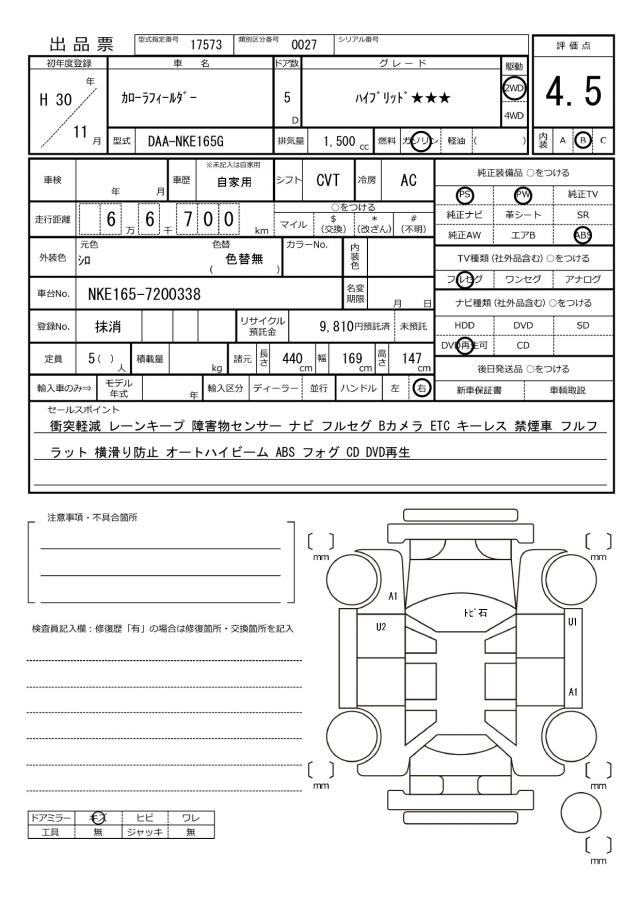 出品票
型式指定番号 17573 類別区分番号 0027 シリアル番号
評価点
4.5
内装 A B C
初年度登録 車名 ドア数 グレード 駆動
H 30 年 11 月
カローラフィールダー
5 D
ハイブリッド★★★
2WD
4WD
型式 DAA-NKE165G 排気量 1,500 cc 燃料 ガソリン 軽油 ( )
車検 年 月 車歴 ※未記入は自家用 自家用 シフト CVT 冷房 AC
走行距離 6 6 7 0 0 万 千 km
○をつける
マイル $ (交換) * (改ざん) # (不明)
外装色 元色 シロ 色替 ( 色替無 ) カラーNo. 内装色
車台No. NKE165-7200338 名変期限 月 日
登録No. 抹消 リサイクル預託金 9,810円預託済 未預託
定員 5( ) 人 積載量 kg 諸元 長さ 440 cm 幅 169 cm 高さ 147 cm
輸入車のみ⇒ モデル年式 年 輸入区分 ディーラー 並行 ハンドル 左 右
純正装備品 ○をつける
PS PW 純正TV
純正ナビ 革シート SR
純正AW エアB ABS
TV種類(社外品含む)○をつける
フルセグ ワンセグ アナログ
ナビ種類(社外品含む)○をつける
HDD DVD SD
DVD再生可 CD
後日発送品 ○をつける
新車保証書 車輌取説
セールスポイント
衝突軽減 レーンキープ 障害物センサー ナビ フルセグ Bカメラ ETC キーレス 禁煙車 フルフ
ラット 横滑り防止 オートハイビーム ABS フォグ CD DVD再生
注意事項・不具合箇所
検査員記入欄:修復歴「有」の場合は修復箇所・交換箇所を記入
ドアミラー キズ ヒビ ワレ
工具 無 ジャッキ 無
[ ] mm
[ ] mm
A1
トビ石
U2
U1
A1
[ ] mm
[ ] mm
[ ] mm